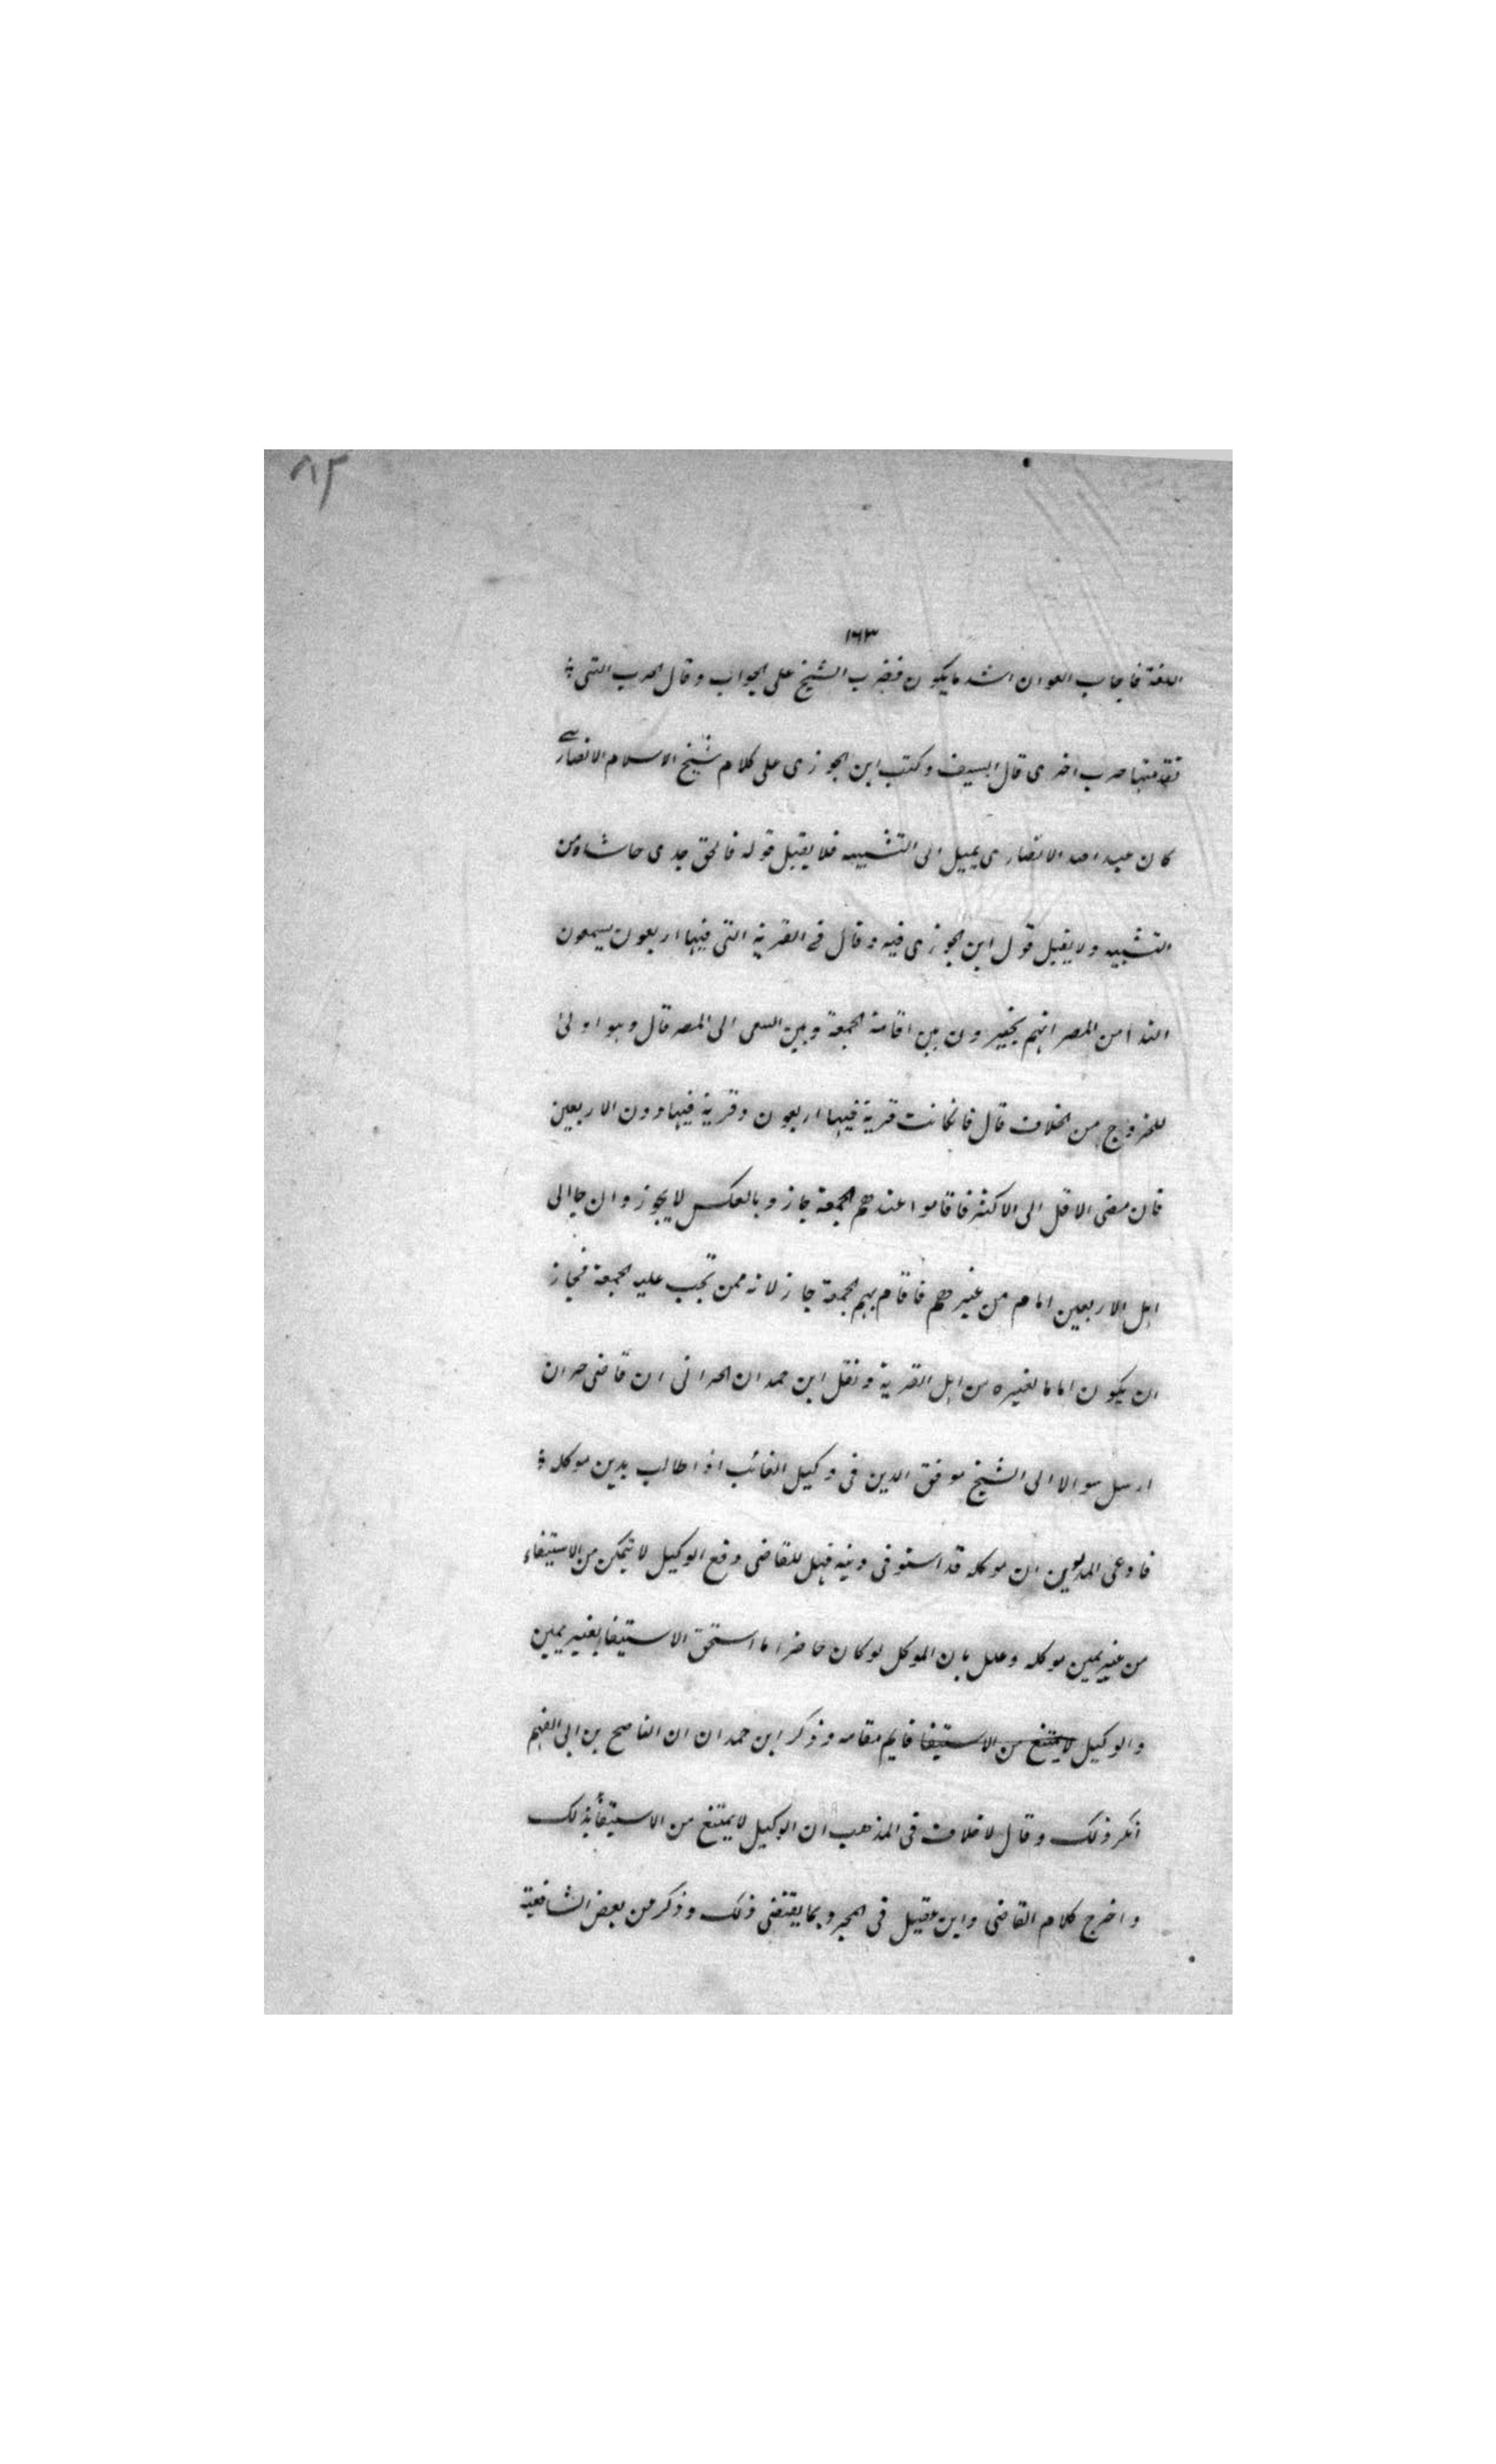 ٨٢
١٦٣
اللغة فاجاب العوان اشد مايكون فضرب الشيخ على الجواب وقال الحرب التى
تقدمتها حرب اخرى قال السيف وكتب ابن الجوزى على كلام شيخ الاسلام الانصارى
كان عبد الله الانصارى يميل الى التشبيه فلا يقبل قوله فالحق جدى حاشاه من
التشبيه ولا يقبل قول ابن الجوزى فيه وقال فى القرية التى فيها اربعون يسمعون
الندا من المصر انهم يخيرون بين اقامة الجمعة وبين السعى الى المصر قال وهو اولى
للخروج من الخلاف قال فانكانت قرية فيها اربعون وقرية فيها دون الاربعين
فان مضى الاقل الى الاكثر فاقاموا عندهم الجمعة جاز وبالعكس لا يجوز وان جا الى
اهل الاربعين امام من غيرهم فاقام بهم الجمعة جاز لانه ممن تجب عليه الجمعة فجاز
ان يكون اماما لغيره من اهل القرية ونقل ابن حمدان الحرانى ان قاضى حران
ارسل سوالا الى الشيخ موفق الدين فى وكيل الغائب اذا طالب بدين موكله
فادعى المديون ان موكله قد استوفى دينه فهل للقاضى دفع الوكيل لا يتمكن من الاستيفاء
من غير يمين موكله وعلل بان الموكل لو كان حاضرا ما استحق الاستيفا بغير يمين
والوكيل لا يمتنع من الاستيفا قايم مقامه وذكر ابن حمدان ان الناصح بن ابى الفهم
انكر ذلك وقال لا خلاف فى المذهب ان الوكيل لا يمتنع من الاستيفأ بذلك
واخرج كلام القاضى وابن عقيل فى المجرد بما يقتضى ذلك وذكر من بعض الشافعية